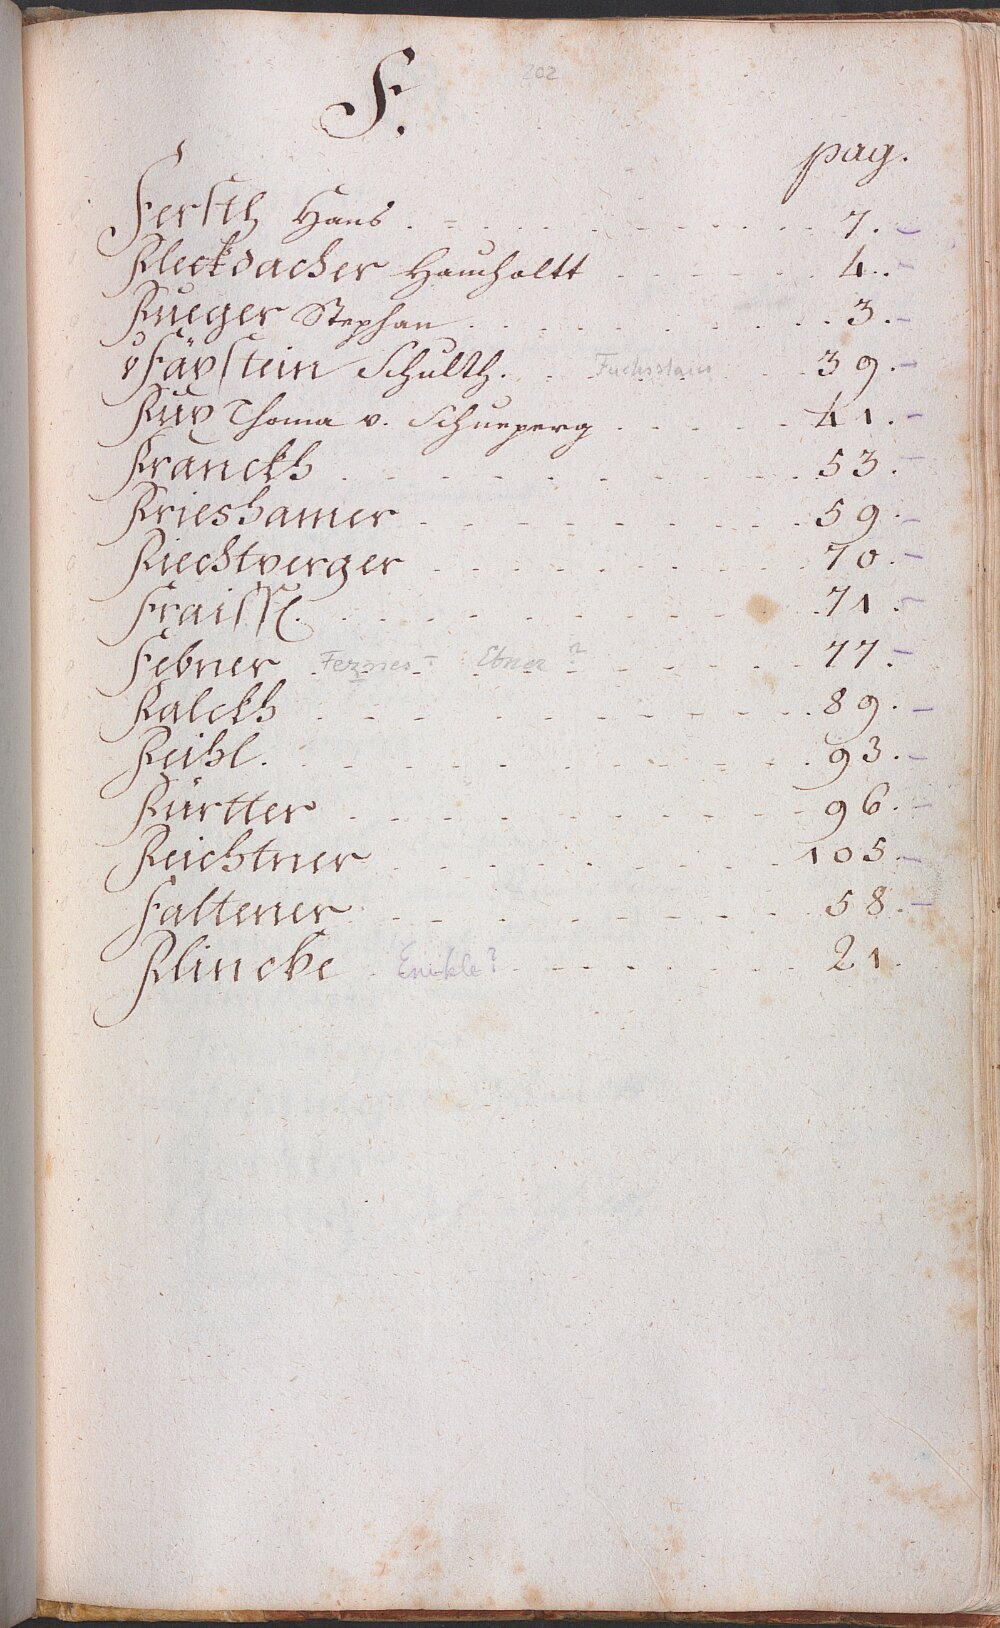 202
F.
pag.
Fersth Hans . . . . . 7.
Fleckdacher Haucholtt . . . 4.
Fueger Stephan . . . . . 3.
v Fäxstein Schulth. . Fuchsstain . . 39.
Fux Thoma v. Schneperg . . . . 41.
Franckh . . . . . 53.
Frieshamer . . . . . 59.
Fiechtperger . . . . . 70.
Fraissl. . . . . . 71.
Febner Fezner? Ebner? . . . . 77.
Falckh . . . . . 89.
Feihl. . . . . . 93.
Fürtter . . . . . 96.
Feichtner . . . . . 105.
Faltener . . . . . 58.
Flinckhe Enikle? . . . . 21.